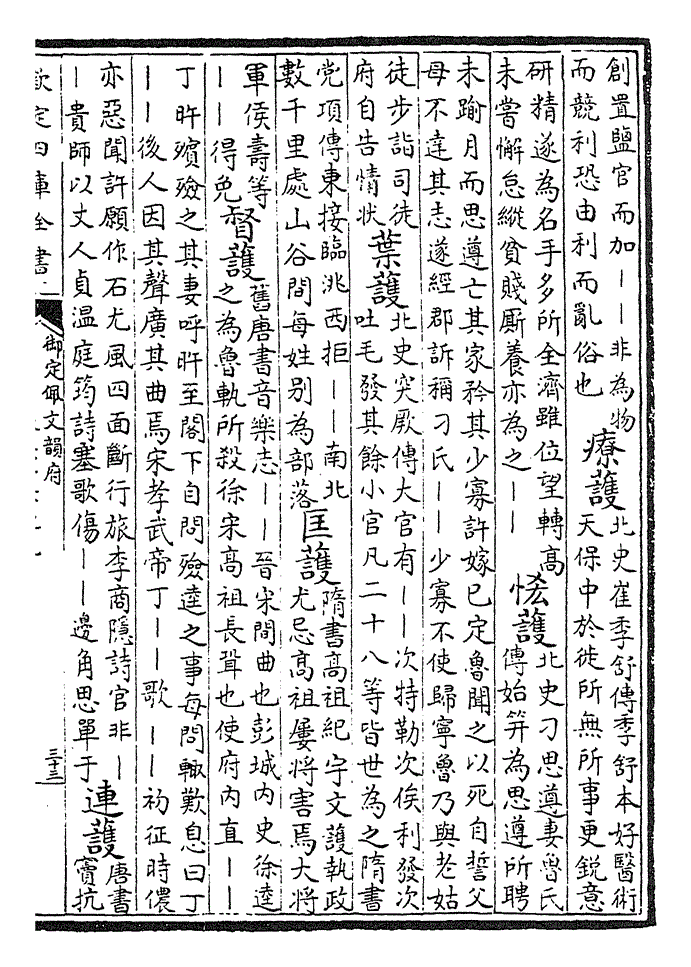 創置鹽官而加——非為物
而競利恐由利而亂俗也
療護
北史崔季舒傳季舒本好醫術
天保中於徒所無所事更銳意
研精遂為名手多所全濟雖位望轉髙
未嘗懈怠縱貧賤厮養亦為之——
恡護
北史刁思遵妻魯氏
傳始笄為思遵所聘
未踰月而思遵亡其家矜其少寡許嫁已定魯聞之以死自誓父
母不達其志遂經郡訴稱刁氏——少寡不使歸寧魯乃與老姑
徒步詣司徒
府自告情狀
葉護
北史突厥傳大官有——次特勒次俟利發次
吐毛發其餘小官凡二十八等皆世為之隋書
党項傳東接臨洮西拒——南北
數千里處山谷間每姓别為部落
匡護
隋書髙祖紀宇文護執政
尤忌髙祖屢將害焉大將
軍侯壽等
——得免
督護
舊唐書音樂志——晉宋間曲也彭城内史徐逵
之為魯軌所殺徐宋髙祖長聓也使府内直——
丁旿殯殮之其妻呼旿至閤下自問殮逵之事每問輒歎息曰丁
——後人因其聲廣其曲焉宋孝武帝丁——歌 ——初征時儂
亦惡聞許願作石尤風四面斷行旅李商隱詩官非—
—貴師以丈人貞温庭筠詩塞歌傷——邊角思單于
連護
唐書
竇抗
欽定四庫全書
御定佩文韻府
三十三